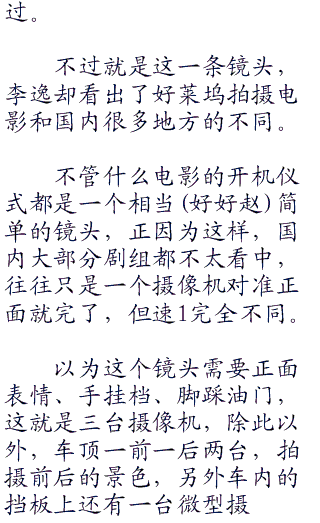 过。
不过就是这一条镜头，
李逸却看出了好莱坞拍摄电
影和国内很多地方的不同。
不管什么电影的开机仪
式都是一个相当(好好赵)简
单的镜头，正因为这样，国
内大部分剧组都不太看中，
往往只是一个摄像机对准正
面就完了，但速1完全不同。
以为这个镜头需要正面
表情、手挂档、脚踩油门，
这就是三台摄像机，除此以
外，车顶一前一后两台，拍
摄前后的景色，另外车内的
挡板上还有一台微型摄